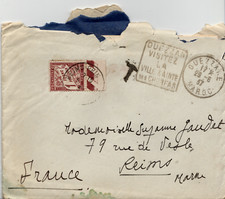 OUEZZAN
VISITEZ
LA
VILLE SAINTE
OUEZZANE
MAROC
T
Mademoiselle Suzanne Gaudet
79 rue de Vesle
Reims
Marne
France